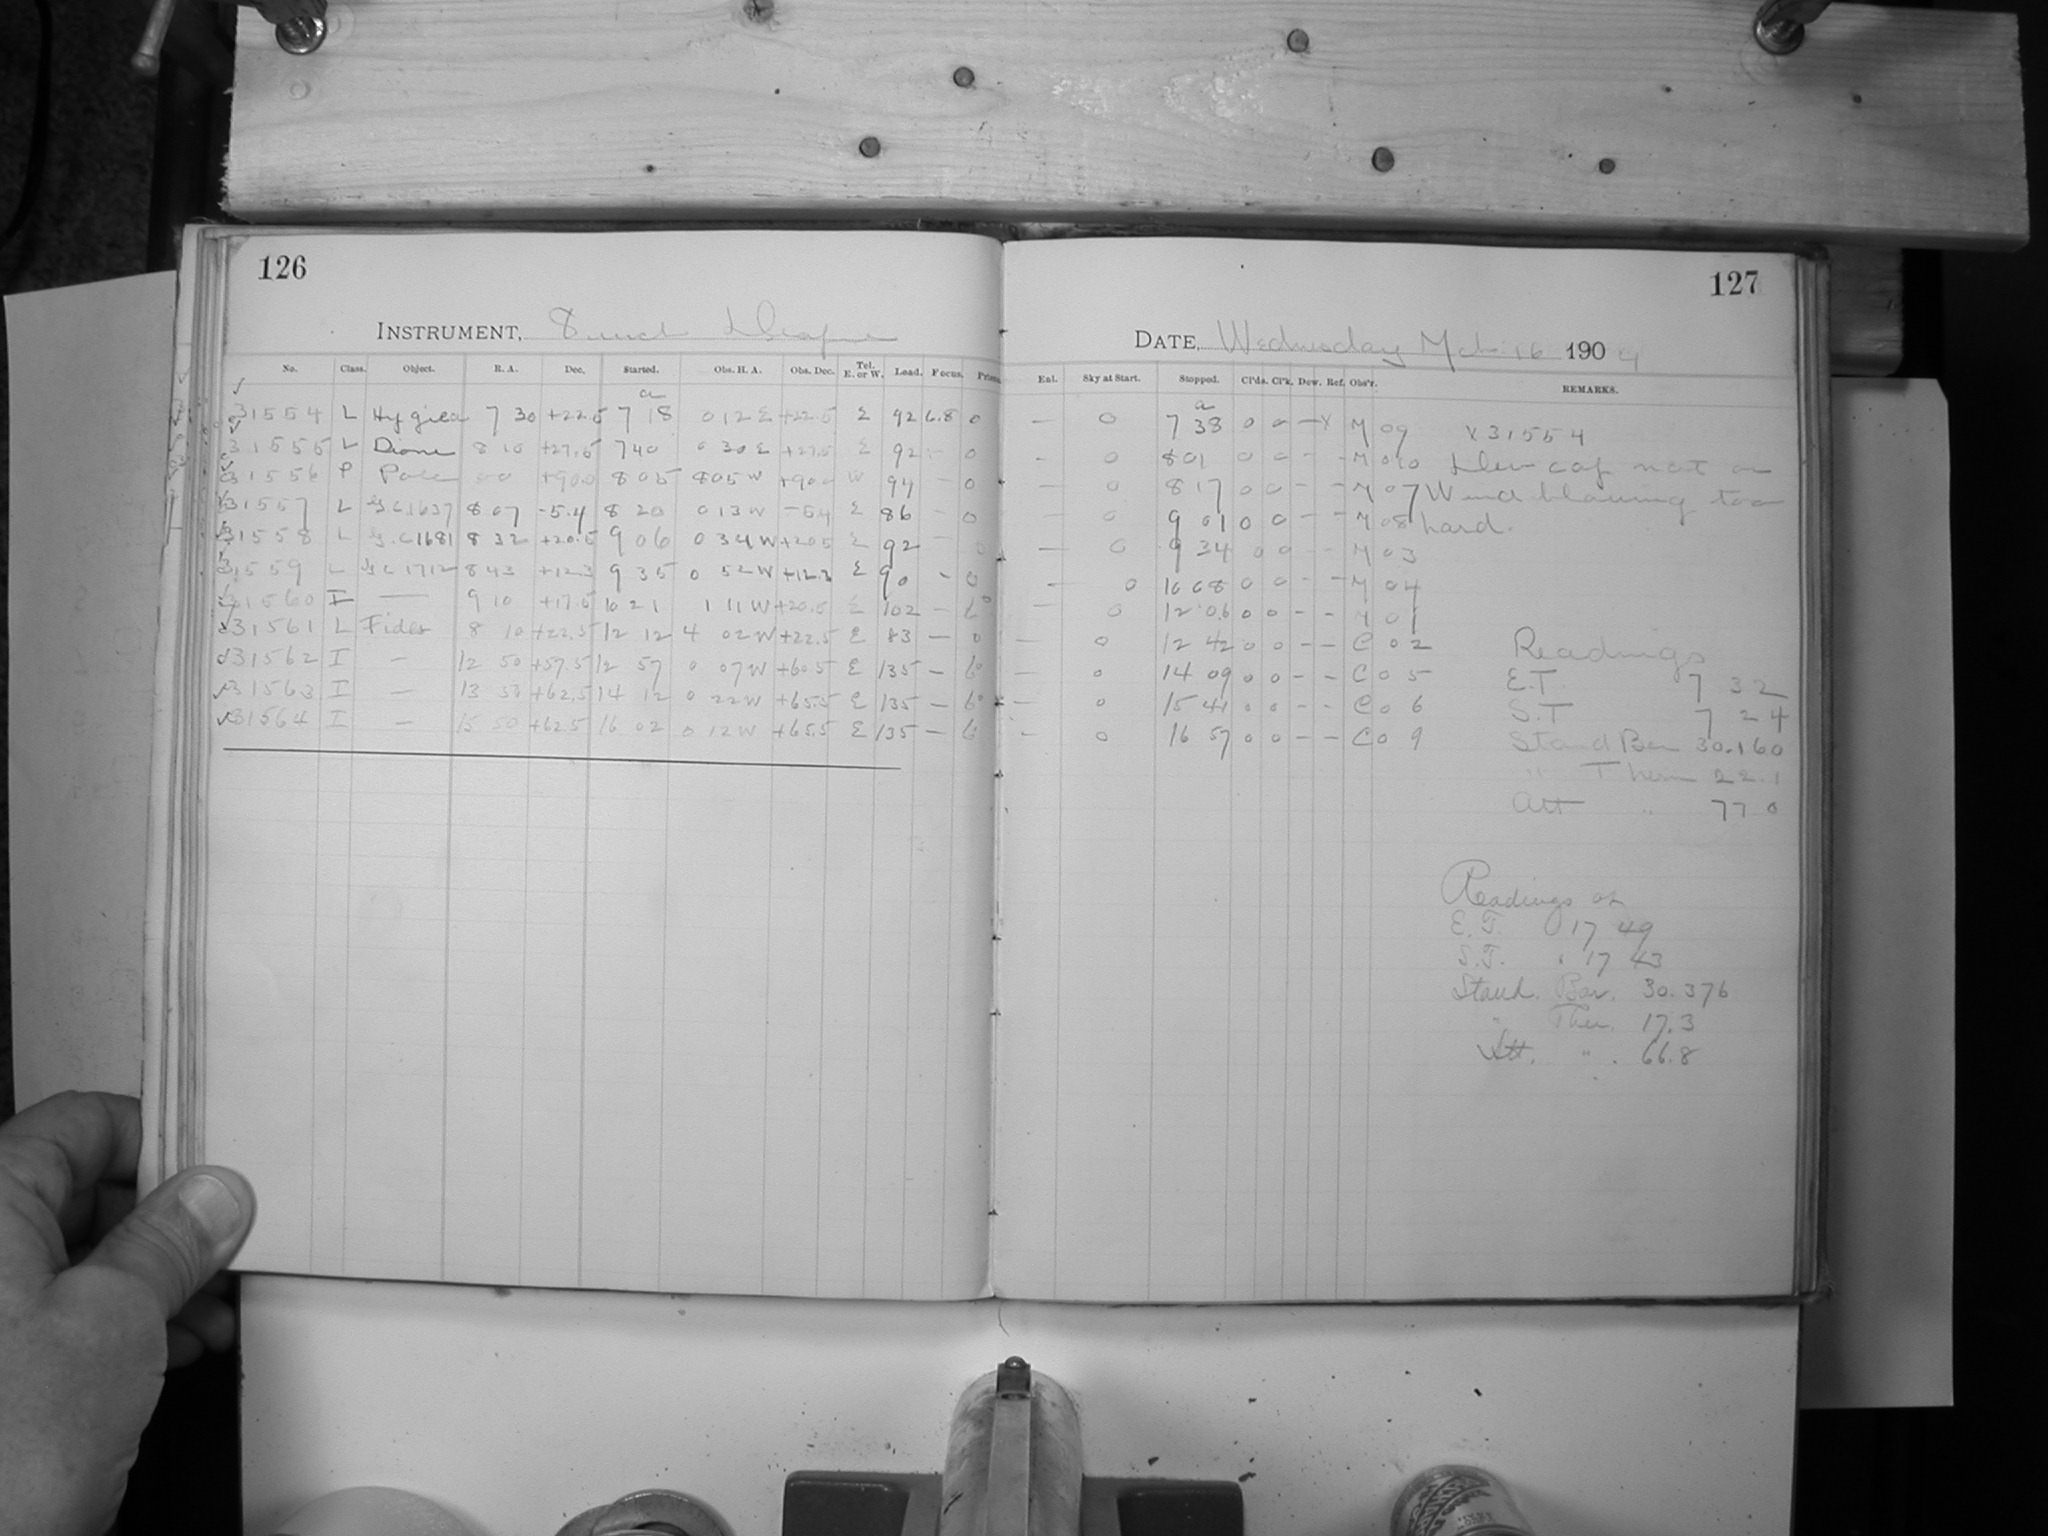 126
INSTRUMENT, 8 inch Draper
No. Class. Object. R. A. Dec. Started. Obs. H. A. Obs. Dec. Tel. E. or W. Lead. Focus. Prism.
a
31554 L Hygiea 7 30 +22.5 7 18 0 12 E +22.5 E 92 6.8 0
31555 L Dione 8 10 +27.5 7 40 0 30 E +27.5 E 92 - 0
31556 P Pole +90.0 8 05 8 05 W +90.0 W 94 - 0
31557 L G.C.1637 8 07 -5.4 8 20 0 13 W -5.4 E 86 - 0
31558 L G.C.1681 8 32 +20.5 9 06 0 34 W +20.5 E 92 - 0
31559 L G.C.1712 8 43 +12.3 9 35 0 52 W +12.3 E 90 - 0
31560 I — 9 10 +17.5 10 21 1 11 W +20.5 E 102 - 6°
31561 L Fides 8 10 +22.5 12 12 4 02 W +22.5 E 83 — 0
31562 I — 12 50 +57.5 12 57 0 07 W +60.5 E 135 — 6°
31563 I — 13 50 +62.5 14 12 0 22 W +65.5 E 135 — 6°
31564 I — 15 50 +62.5 16 02 0 12 W +65.5 E 135 — 6°
127
DATE, Wednesday Mch 16 1904
Enl. Sky at Start. Stopped. Cl'ds. Cl'k. Dew. Ref. Obs'r. REMARKS.
a
— 0 7 38 0 0 — X M 09 X 31554
- 0 8 01 0 0 - - M 010 Dew cap not on
— 0 8 17 0 0 - - M 07 Wind blowing too
— 0 9 01 0 0 - - M 08 hard.
— 0 9 34 0 0 - - M 03
— 0 10 08 0 0 - - M 04
— 0 12 06 0 0 - - M 01
— 0 12 42 0 0 - - C 02
— 0 14 09 0 0 - - C 05
— 0 15 41 0 0 - - C 06
- 0 16 57 0 0 - - C 09
Readings
E.T. 7 32
S.T 7 24
Stand Bar 30.160
" Therm 22.1
Att " 77 0
Readings at
E. T. 17 49
S.T. " 17 43
Stand. Bar. 30.376
" Ther. 17.3
Att. " . 66.8